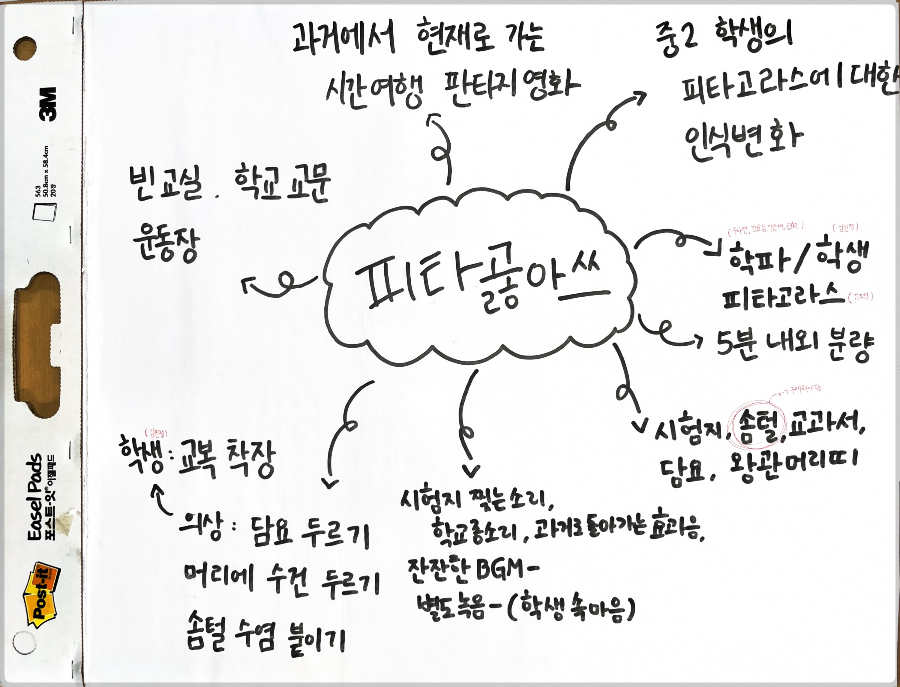 과거에서 현재로 가는
시간여행 판타지영화
중2 학생의
피타고라스에 대한
인식변화
빈교실, 학교 교문
운동장
피타골아쓰
학파/학생
피타고라스
5분 내외 분량
시험지, 솜털, 교과서,
담요, 왕관머리띠
학생: 교복 착장
의상: 담요 두르기
머리에 수건 두르기
솜털 수염 붙이기
시험지 찢는소리,
학교종소리, 과거로 돌아가는 효과음,
잔잔한 BGM-
별도녹음-(학생 속마음)
3M
563
50.8cm x 58.4cm
20장
Easel Pads
포스트-잇 이젤패드
Post-it